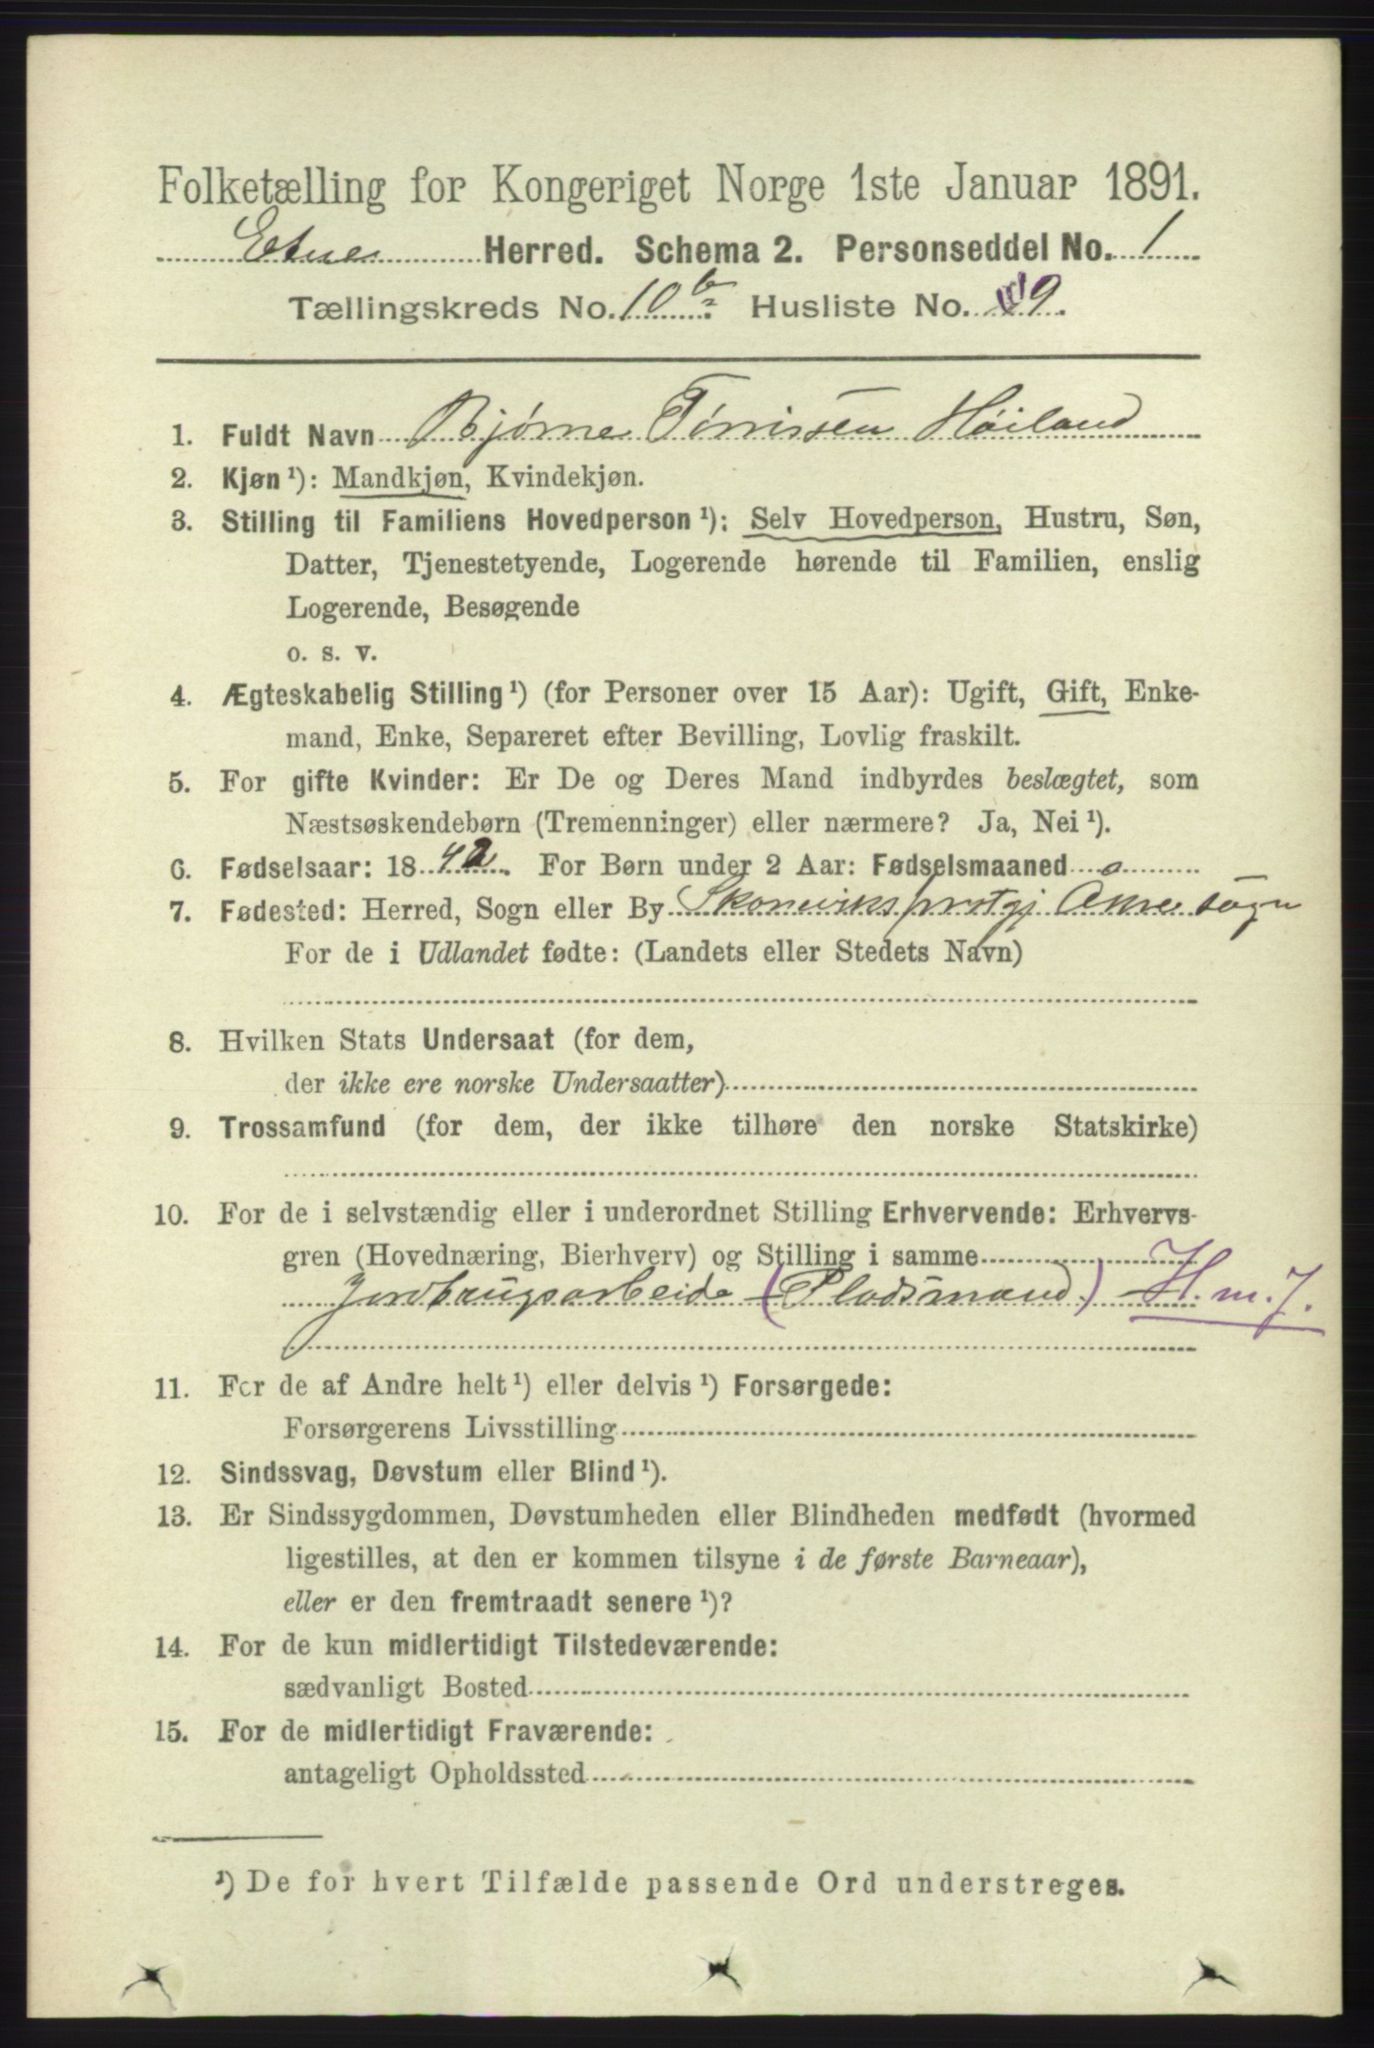 Folketælling for Kongeriget Norge 1ste Januar 1891.
Etne Herred. Schema 2. Personseddel No. 1
Tællingskreds No. 10 b. Husliste No. 9.
1. Fuldt Navn Bjørne Tørrissen Høiland
2. Kjøn ¹): Mandkjøn, Kvindekjøn.
3. Stilling til Familiens Hovedperson ¹): Selv Hovedperson, Hustru, Søn,
Datter, Tjenestetyende, Logerende hørende til Familien, enslig
Logerende, Besøgende
o. s. v.
4. Ægteskabelig Stilling ¹) (for Personer over 15 Aar): Ugift, Gift, Enke-
mand, Enke, Separeret efter Bevilling, Lovlig fraskilt.
5. For gifte Kvinder: Er De og Deres Mand indbyrdes beslægtet, som
Næstsøskendebørn (Tremenninger) eller nærmere? Ja, Nei ¹).
6. Fødselsaar: 1842. For Børn under 2 Aar: Fødselsmaaned
7. Fødested: Herred, Sogn eller By Skoneviks prstgj Akre sogn
For de i Udlandet fødte: (Landets eller Stedets Navn)
8. Hvilken Stats Undersaat (for dem,
der ikke ere norske Undersaatter)
9. Trossamfund (for dem, der ikke tilhøre den norske Statskirke)
10. For de i selvstændig eller i underordnet Stilling Erhvervende: Erhvervs-
gren (Hovednæring, Bierhverv) og Stilling i samme
Jordbrugsarbeide (Pladsmand) H. m. J.
11. For de af Andre helt ¹) eller delvis ¹) Forsørgede:
Forsørgerens Livsstilling
12. Sindssvag, Døvstum eller Blind ¹).
13. Er Sindssygdommen, Døvstumheden eller Blindheden medfødt (hvormed
ligestilles, at den er kommen tilsyne i de første Barneaar),
eller er den fremtraadt senere ¹)?
14. For de kun midlertidigt Tilstedeværende:
sædvanligt Bosted
15. For de midlertidigt Fraværende:
antageligt Opholdssted
¹) De for hvert Tilfælde passende Ord understreges.